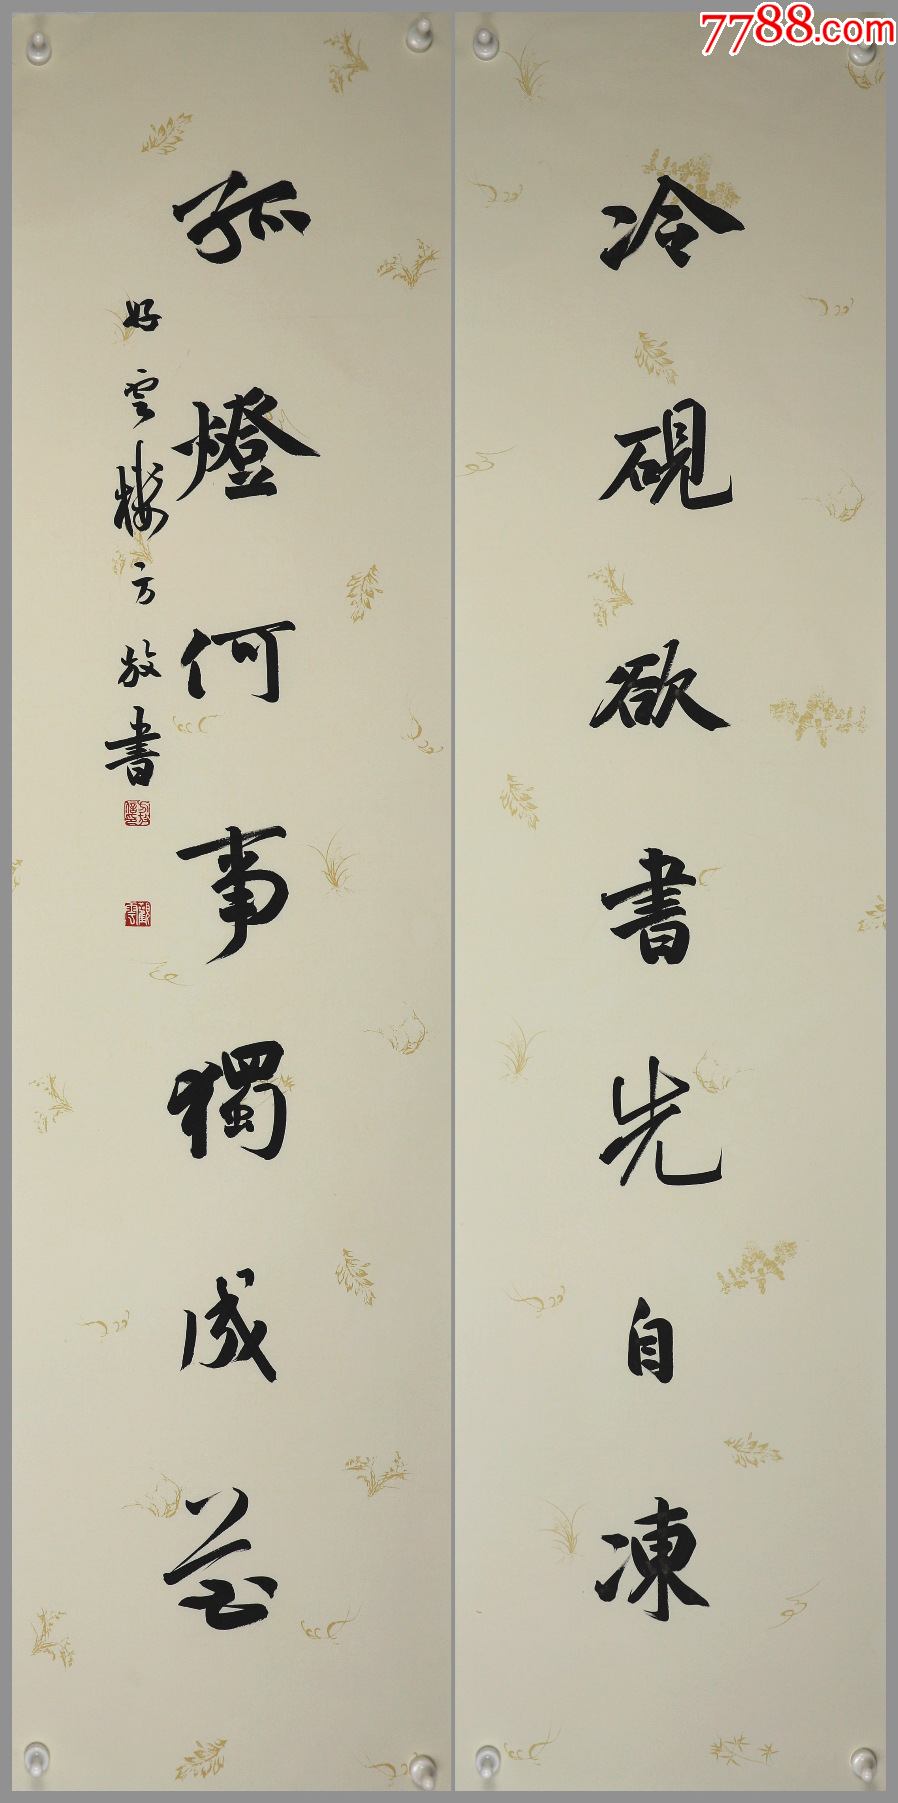 7788.com
冷硯欲書先自凍
孤燈何事獨成花
好雲樓方放書